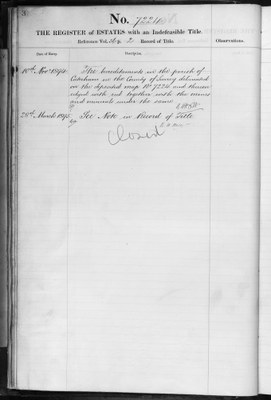 No. 
THE REGISTER of ESTATES with an Indefeasible Title.
Reference Vol. 2 Record of Title.
Date of Entry.
Description.
Observations.
10th Novr 1894
The hereditaments in the parish of
Caterham in the County of Surrey delineated
on the deposited map No 7221 and thereon
edged with red together with the mines
and minerals under the same
25th March 1895
See Note in Record of Title
Closed